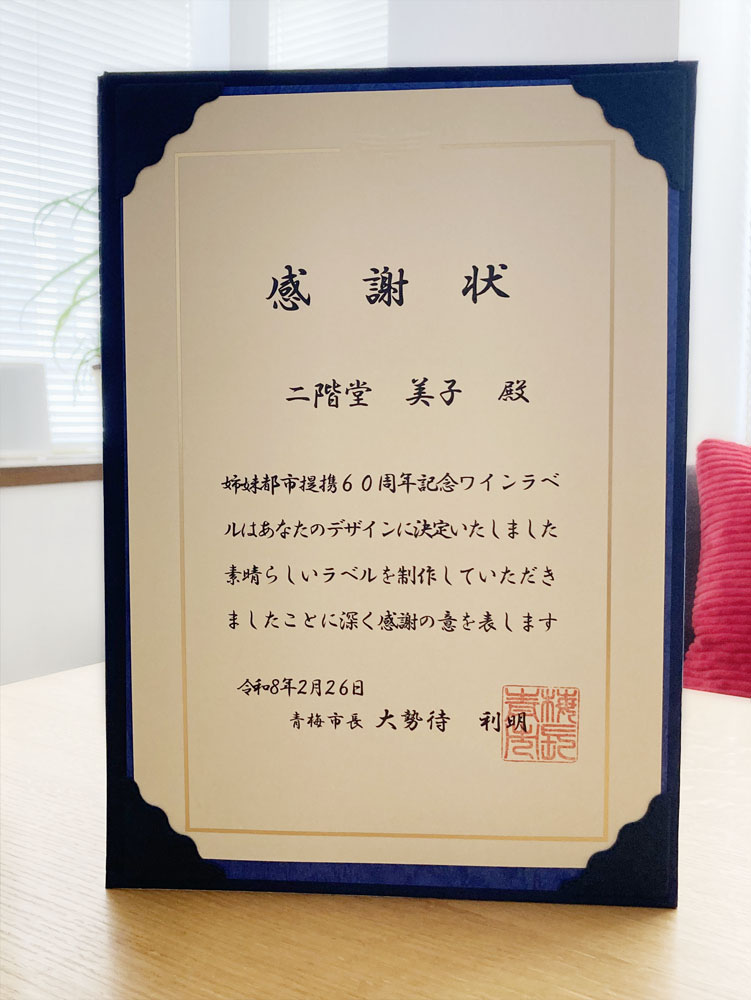 感謝状
二階堂 美子 殿
姉妹都市提携60周年記念ワインラベ
ルはあなたのデザインに決定いたしました
素晴らしいラベルを制作していただき
ましたことに深く感謝の意を表します
令和8年2月26日
青梅市長 大勢待 利明